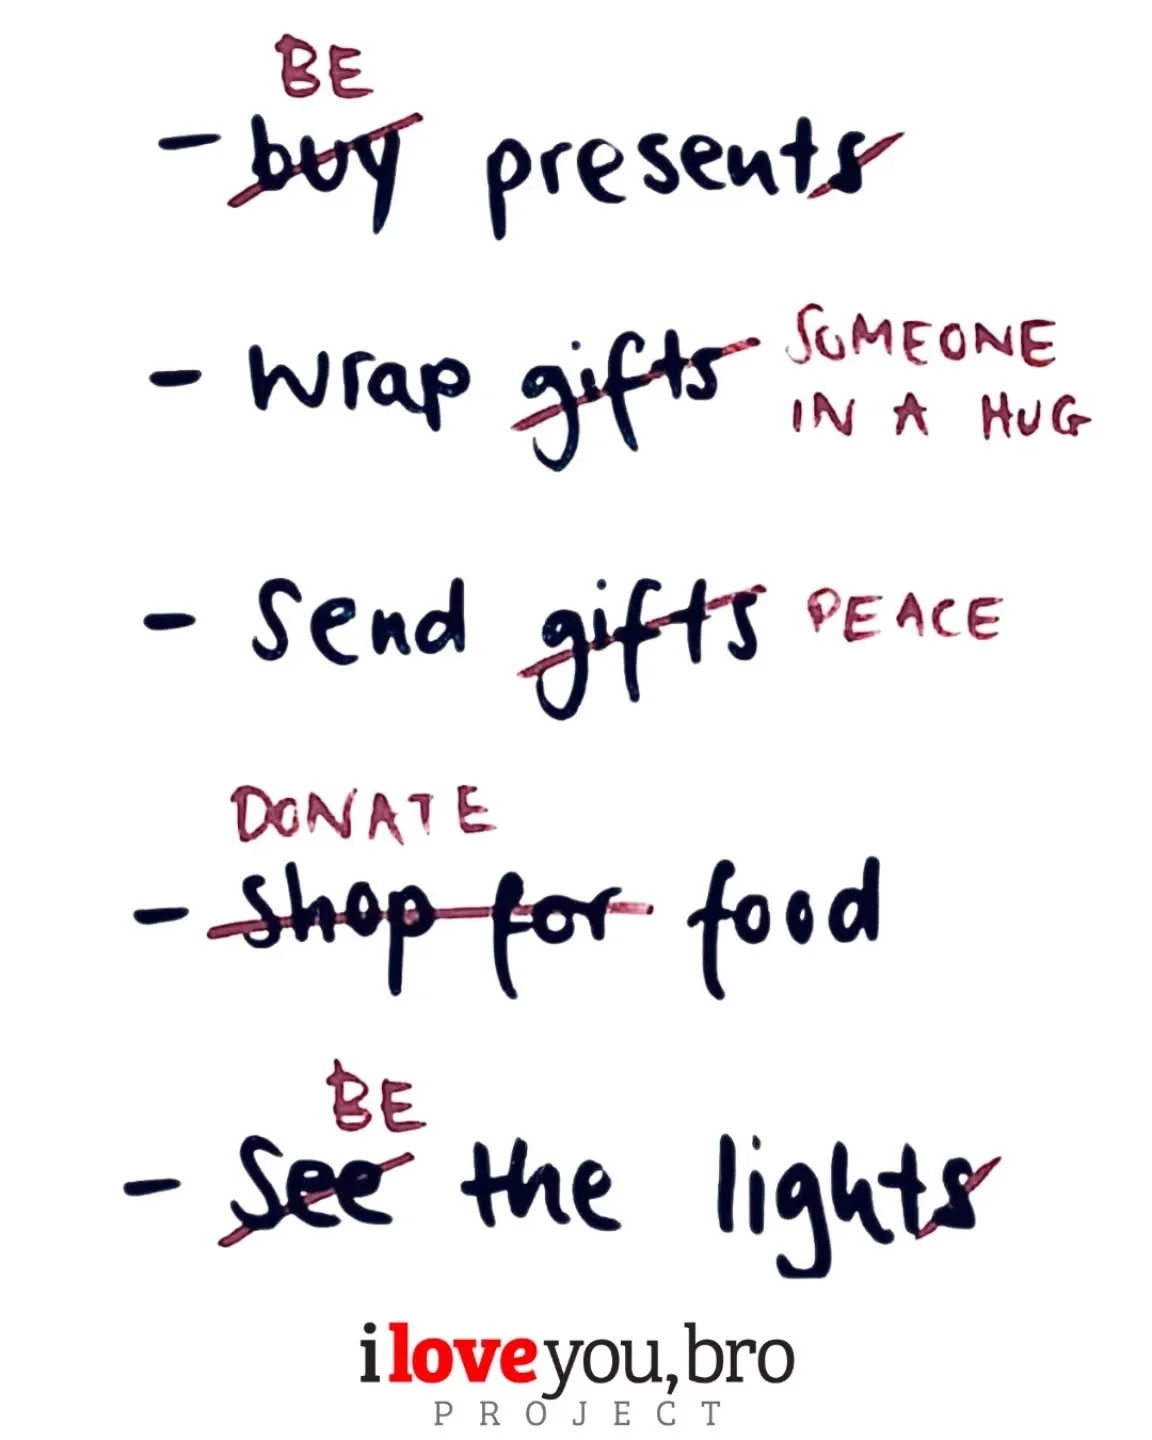 BE
- buy presents
- wrap gifts SOMEONE
IN A HUG
- Send gifts PEACE
DONATE
- shop for food
BE
- See the lights
i love you, bro
PROJECT